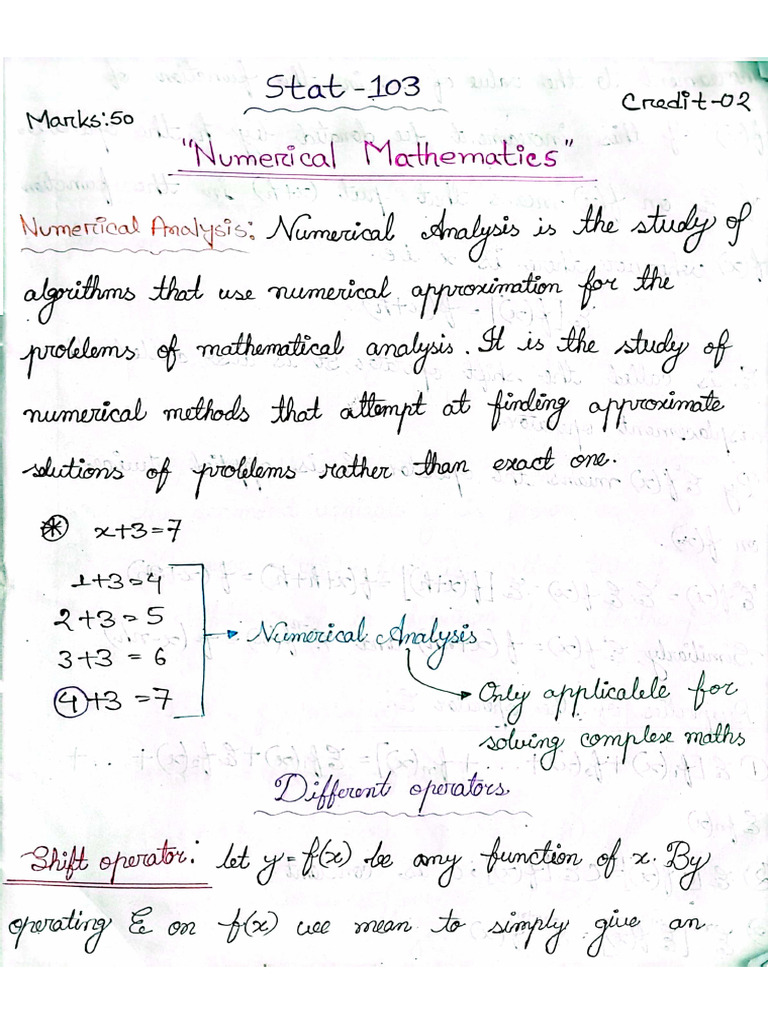 Stat-103
Marks:50
Credit-02
"Numerical Mathematics"
Numerical Analysis: Numerical Analysis is the study of
algorithms that use numerical approximation for the
problems of mathematical analysis. It is the study of
numerical methods that attempt at finding approximate
solutions of problems rather than exact one.
⊛ x+3=7
1+3=4
2+3=5
3+3=6
4+3=7
Numerical Analysis
Only applicable for
solving complex maths
Different operators
Shift operator: let y=f(x) be any function of x. By
operating E on f(x) we mean to simply give an